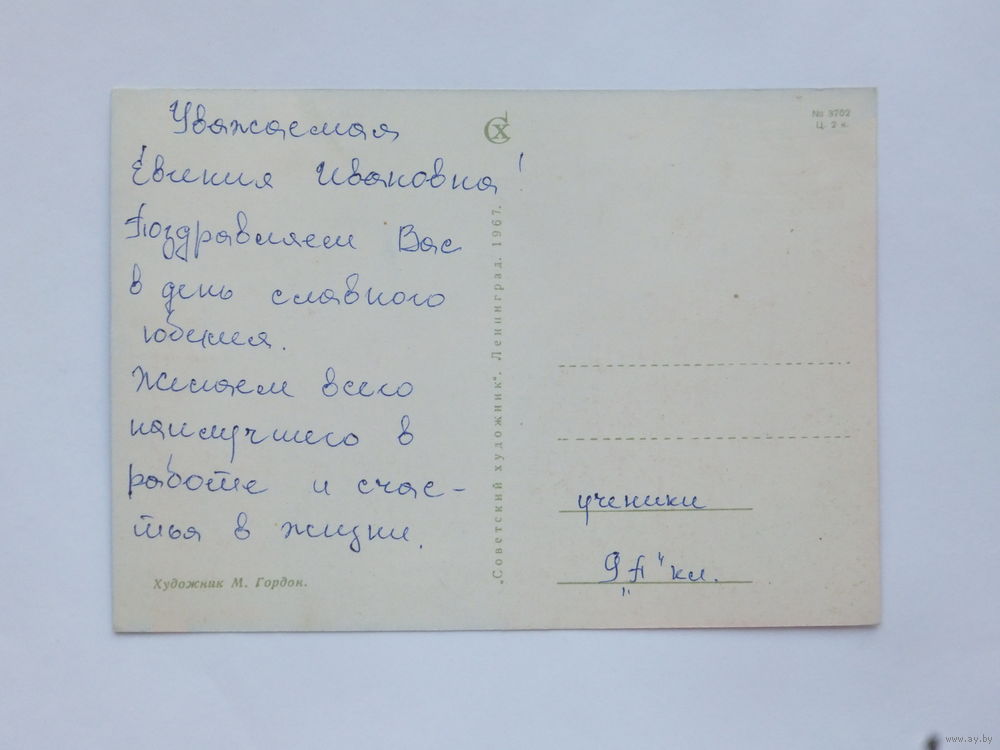 Уважаемая
Евгения Ивановна!
Поздравляем Вас
в день славного
юбилея.
Желаем всего
наилучшего в
работе и счас-
тья в жизни.
Художник М. Гордон.
СХ
„Советский художник“. Ленинград. 1967.
№ 3702
Ц. 2 к.
ученики
9 „А" кл.
www.ay.by